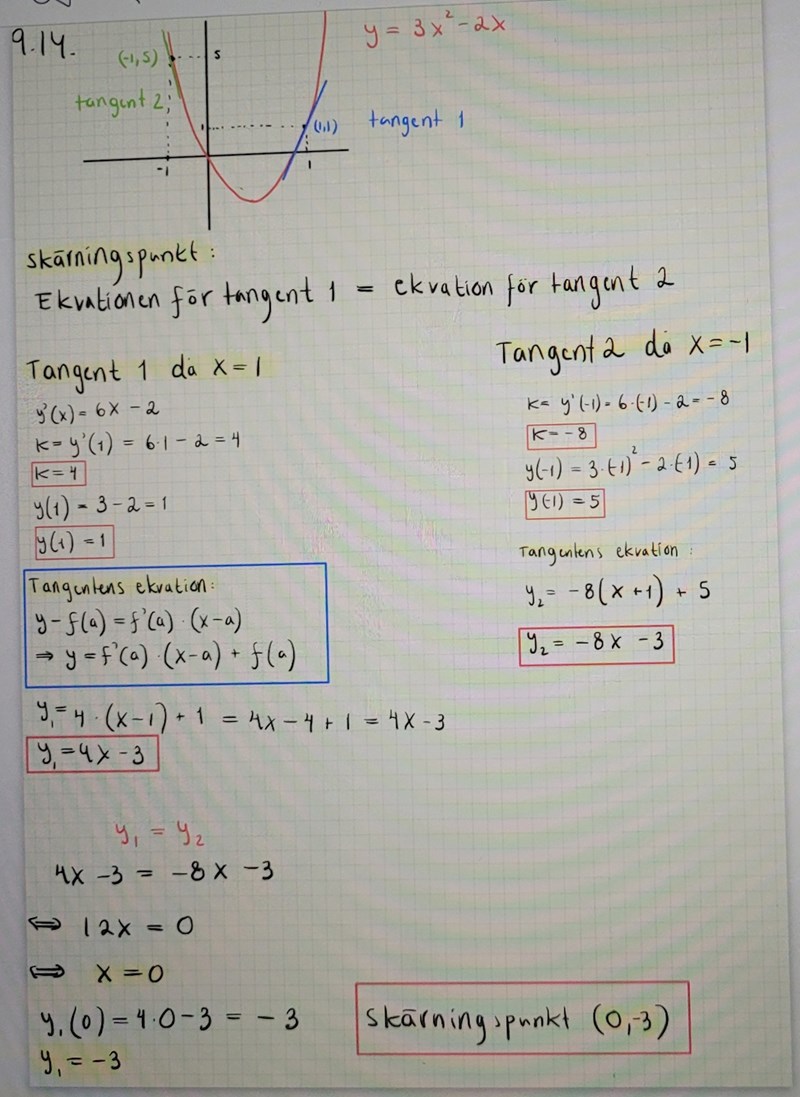 9.14.
y = 3x² - 2x
(-1, 5)
5
tangent 2
(1,1)
tangent 1
1
-1
1
skärningspunkt :
Ekvationen för tangent 1 = ekvation för tangent 2
Tangent 1 då x = 1
y'(x) = 6x - 2
k = y'(1) = 6·1 - 2 = 4
k = 4
y(1) = 3 - 2 = 1
y(1) = 1
Tangentens ekvation:
y - f(a) = f'(a) · (x-a)
⇒ y = f'(a) · (x-a) + f(a)
y₁ = 4 · (x-1) + 1 = 4x - 4 + 1 = 4x - 3
y₁ = 4x - 3
Tangent 2 då x = -1
k = y'(-1) = 6·(-1) - 2 = -8
k = -8
y(-1) = 3·(-1)² - 2·(-1) = 5
y(-1) = 5
Tangentens ekvation :
y₂ = -8(x+1) + 5
y₂ = -8x - 3
y₁ = y₂
4x - 3 = -8x - 3
⇔ 12x = 0
⇔ x = 0
y₁(0) = 4·0 - 3 = -3
y₁ = -3
Skärningspunkt (0,-3)